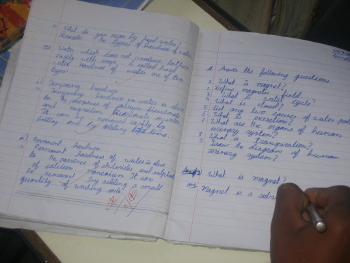 What do you mean by hard water?
Describe the types of hardness of water.
Water which does not produce lather
easily with soap is called hard
water. Hardness of water are of two
types
i) Temporary hardness
Temporary hardness in water is due
to the presence of
and magnesium
It can be removed easily by
boiling and by adding lime
ii) Permanent hardness
Permanent hardness of water is due
to the presence of chlorides and sulphates
of calcium, magnesium. It can
be removed by adding a small
quantity of washing soda.
Answer the following questions
1. What is magnet?
2. Define magnetic field.
3. What is water cycle?
4. What is
5. List some sources of safe water
6. What is excretion?
7. What are the organs of human
excretory system?
8. What is transpiration?
9. Draw the diagram of human
excretory system?
What is magnet?
Magnet is a